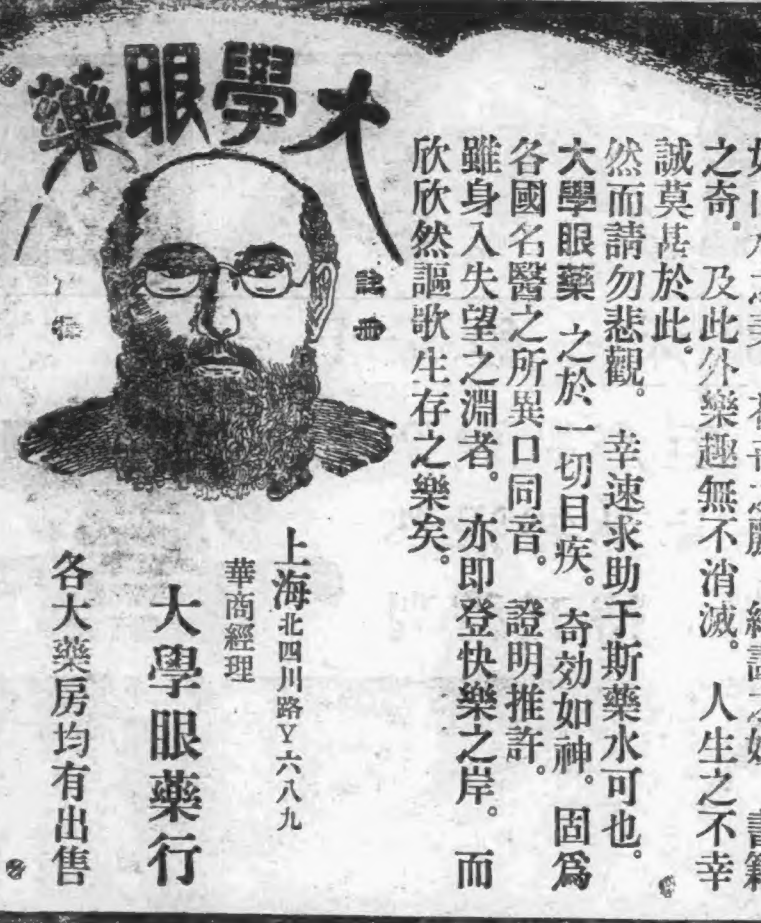 大學眼藥
註冊
之奇。及此外樂趣無不消滅。人生之不幸
誠莫甚於此。
然而請勿悲觀。幸速求助于斯藥水可也。
大學眼藥 之於一切目疾。奇効如神。固爲
各國名醫之所異口同音。證明推許。
雖身入失望之淵者。亦即登快樂之岸。而
欣欣然謳歌生存之樂矣。
上海北四川路Y六八九
華商經理
大學眼藥行
各大藥房均有出售